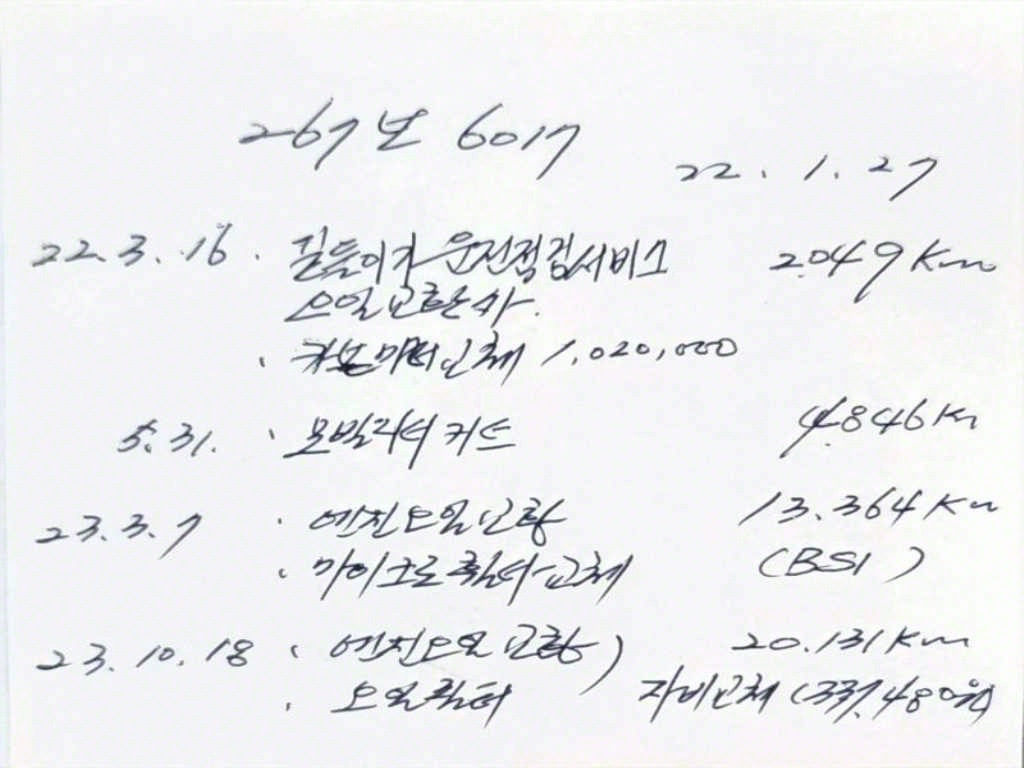 267보 6017
22. 1. 27
22.3.16. 길들이기 운전점검서비스 2.049Km
오일교환
교체 1,020,000
5.31. 모빌리티 키트 4.846Km
23.3.7 · 엔진오일교환 13.364Km
· 마이크로휠터교체 (BSI)
23.10.18 · 엔진오일교환) 20.131Km
· 오일휠터 자비교체 (337.480원)